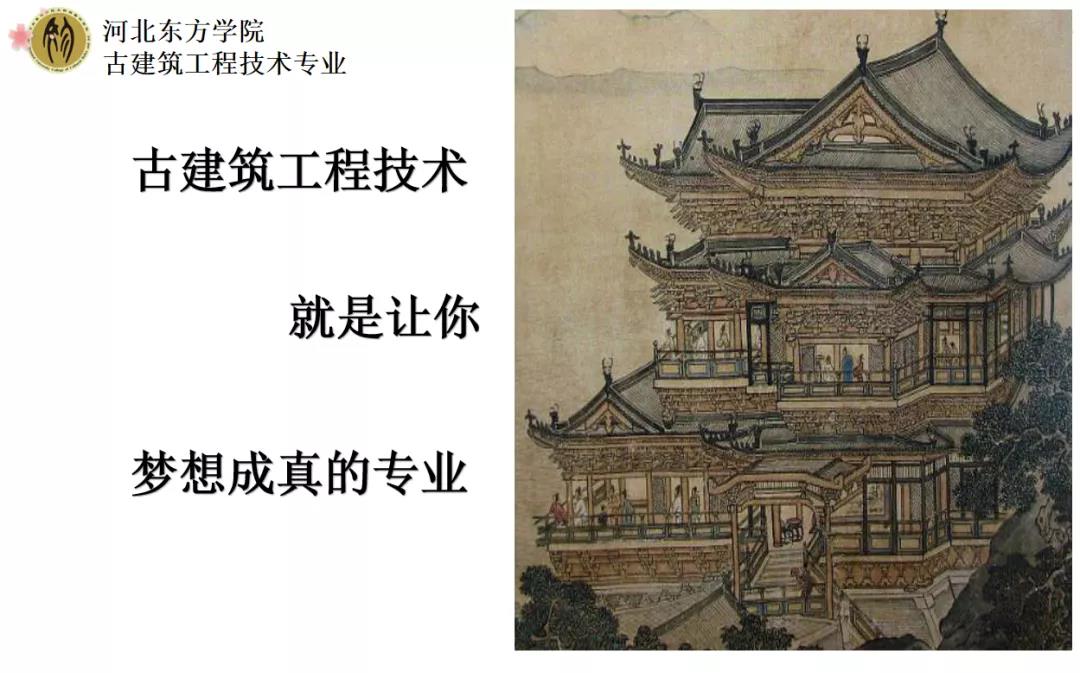 河北东方学院
古建筑工程技术专业
古建筑工程技术
就是让你
梦想成真的专业